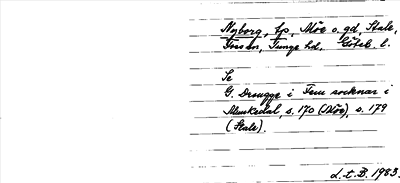 Nyborg, tp, Möe o. gd, Stale,
Foss sn, Tunge hd. Göteb. l.
Se
G. Drougge i Fem socknar i
Munkedal, s. 170 (Möe), s. 179
(Stale).
L. t. B. 1983.